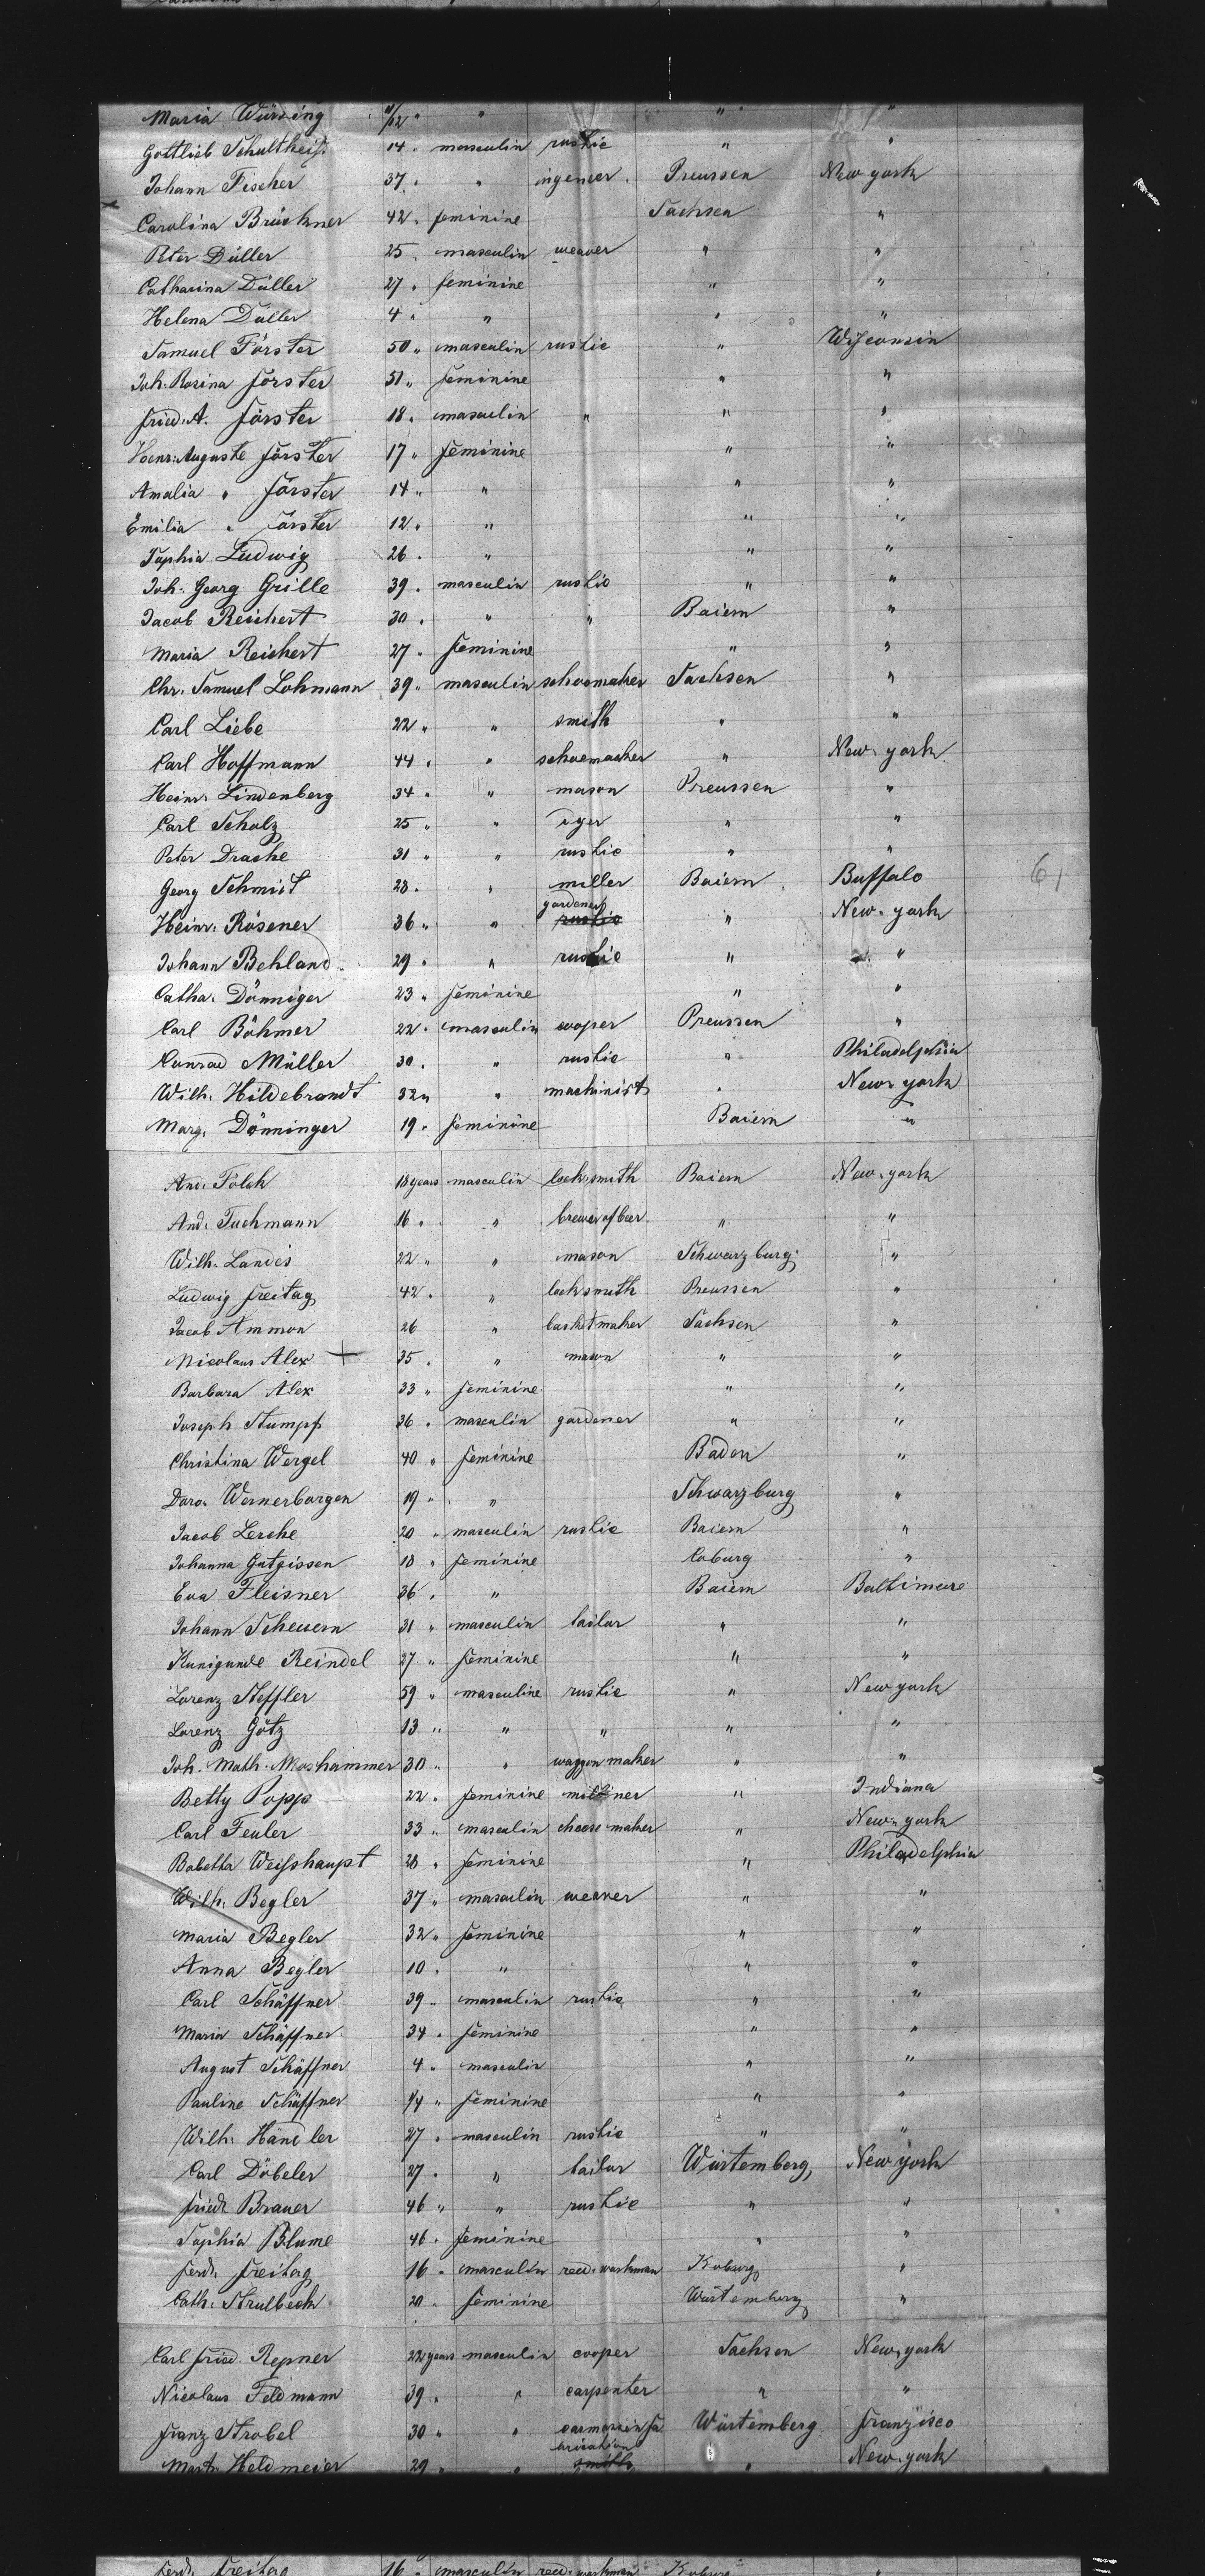 Maria Würzing 11/12 " " " "
Gottlieb Schultheiß 14 " masculin rustic " "
Johann Fischer 37 " " ingeneer Preussen New york
Carolina Brückner 42 " feminine Sachsen "
Peter Düller 25 " masculin weaver " "
Catharina Düller 27 " feminine " "
Helena Düller 4 " " " "
Samuel Förster 50 " masculin rustic " Wisconsin
Joh. Rosina Förster 51 " feminine " "
Fried. A. Förster 18 " masculin " " "
Henr. Auguste Förster 17 " feminine " "
Amalia " Förster 14 " " " "
Emilia " Förster 12 " " " "
Sophia Ludwig 26 " " " "
Joh. Georg Grille 39 " masculin rustic " "
Jacob Reichert 30 " " " Baiern "
Maria Reichert 27 " feminine " "
Chr. Samuel Lohmann 39 " masculin schoemaker Sachsen "
Carl Liebe 22 " " smith " "
Carl Hoffmann 44 " " schoemacher " New york
Heinr. Lindenberg 34 " " mason Preussen "
Carl Scholz 25 " " " "
Peter Drache 31 " " rustic " "
Georg Schmidt 28 " " miller Baiern Buffalo 61
gardener
Heinr. Rösener 36 " " rustic " New-york
Johann Behland 29 " " rustic " "
Catha. Dönniger 23 " feminine " "
Carl Böhmer 22 " masculin cooper Preussen "
Conrad Müller 30 " " rustic " Philadelphia
Wilh. Hildebrandt 32 " " machinist " New-york
Marg. Dönninger 19 " feminine Baiern "
And. Fölch 18 years masculin locksmith Baiern New-york
And. Tuchmann 16 " " brewer of beer " "
Wilh. Landes 22 " " mason Schwarzburg "
Ludwig Freitag 42 " " locksmith Preussen "
Jacob Ammon 26 " basketmaker Sachsen "
Nicolaus Alex + 35 " " mason " "
Barbara Alex 33 " feminine " "
Joseph Stumpf 36 " masculin gardener " "
Christina Wergel 40 " feminine Baden "
Doro. Wernerborgen 19 " " Schwarzburg "
Jacob Lerche 20 " masculin rustic Baiern "
Johanna Gutgissen 18 " feminine Coburg "
Eva Fleisner 36 " " Baiern Baltimore
Johann Scheuern 31 " masculin tailor " "
Kunigunde Reindel 27 " feminine " "
Lorenz Steffler 59 " masculine rustic " New york
Lorenz Götz 13 " " " " "
Joh. Math. Moshammer 30 " " waggon maker " "
Betty Popp 22 " feminine milliner " Indiana
Carl Feuler 33 " masculin cheese maker " New-york
Babetta Weißhaupt 28 " feminine " Philadelphia
Wilh. Begler 37 " masculin weaver " "
Maria Begler 32 " feminine " "
Anna Begler 10 " " " "
Carl Schäffner 39 " masculin rustic " "
Maria Schäffner 34 " feminine " "
August Schäffner 4 " masculin " "
Pauline Schäffner 1/4 " feminine " "
Wilh. Handler 27 " masculin rustic " "
Carl Döbeler 27 " " tailor Würtemberg New york
Friedr Brauer 46 " " rustic " "
Sophia Blume 46 " feminine " "
Ferd. Freitag 16 " masculin reed-workman Koburg "
Cath. Strulbeck 20 " feminine Würtemberg "
Carl Fried. Repner 22 years masculin cooper Sachsen New-york
Nicolaus Feldmann 39 " " carpenter " "
Franz Strobel 30 " " Würtemberg Franzisco
Mart. Heldmeier 29 " " smith " New-york
Ferd. Freitag 16 " masculin reed-workman Koburg "